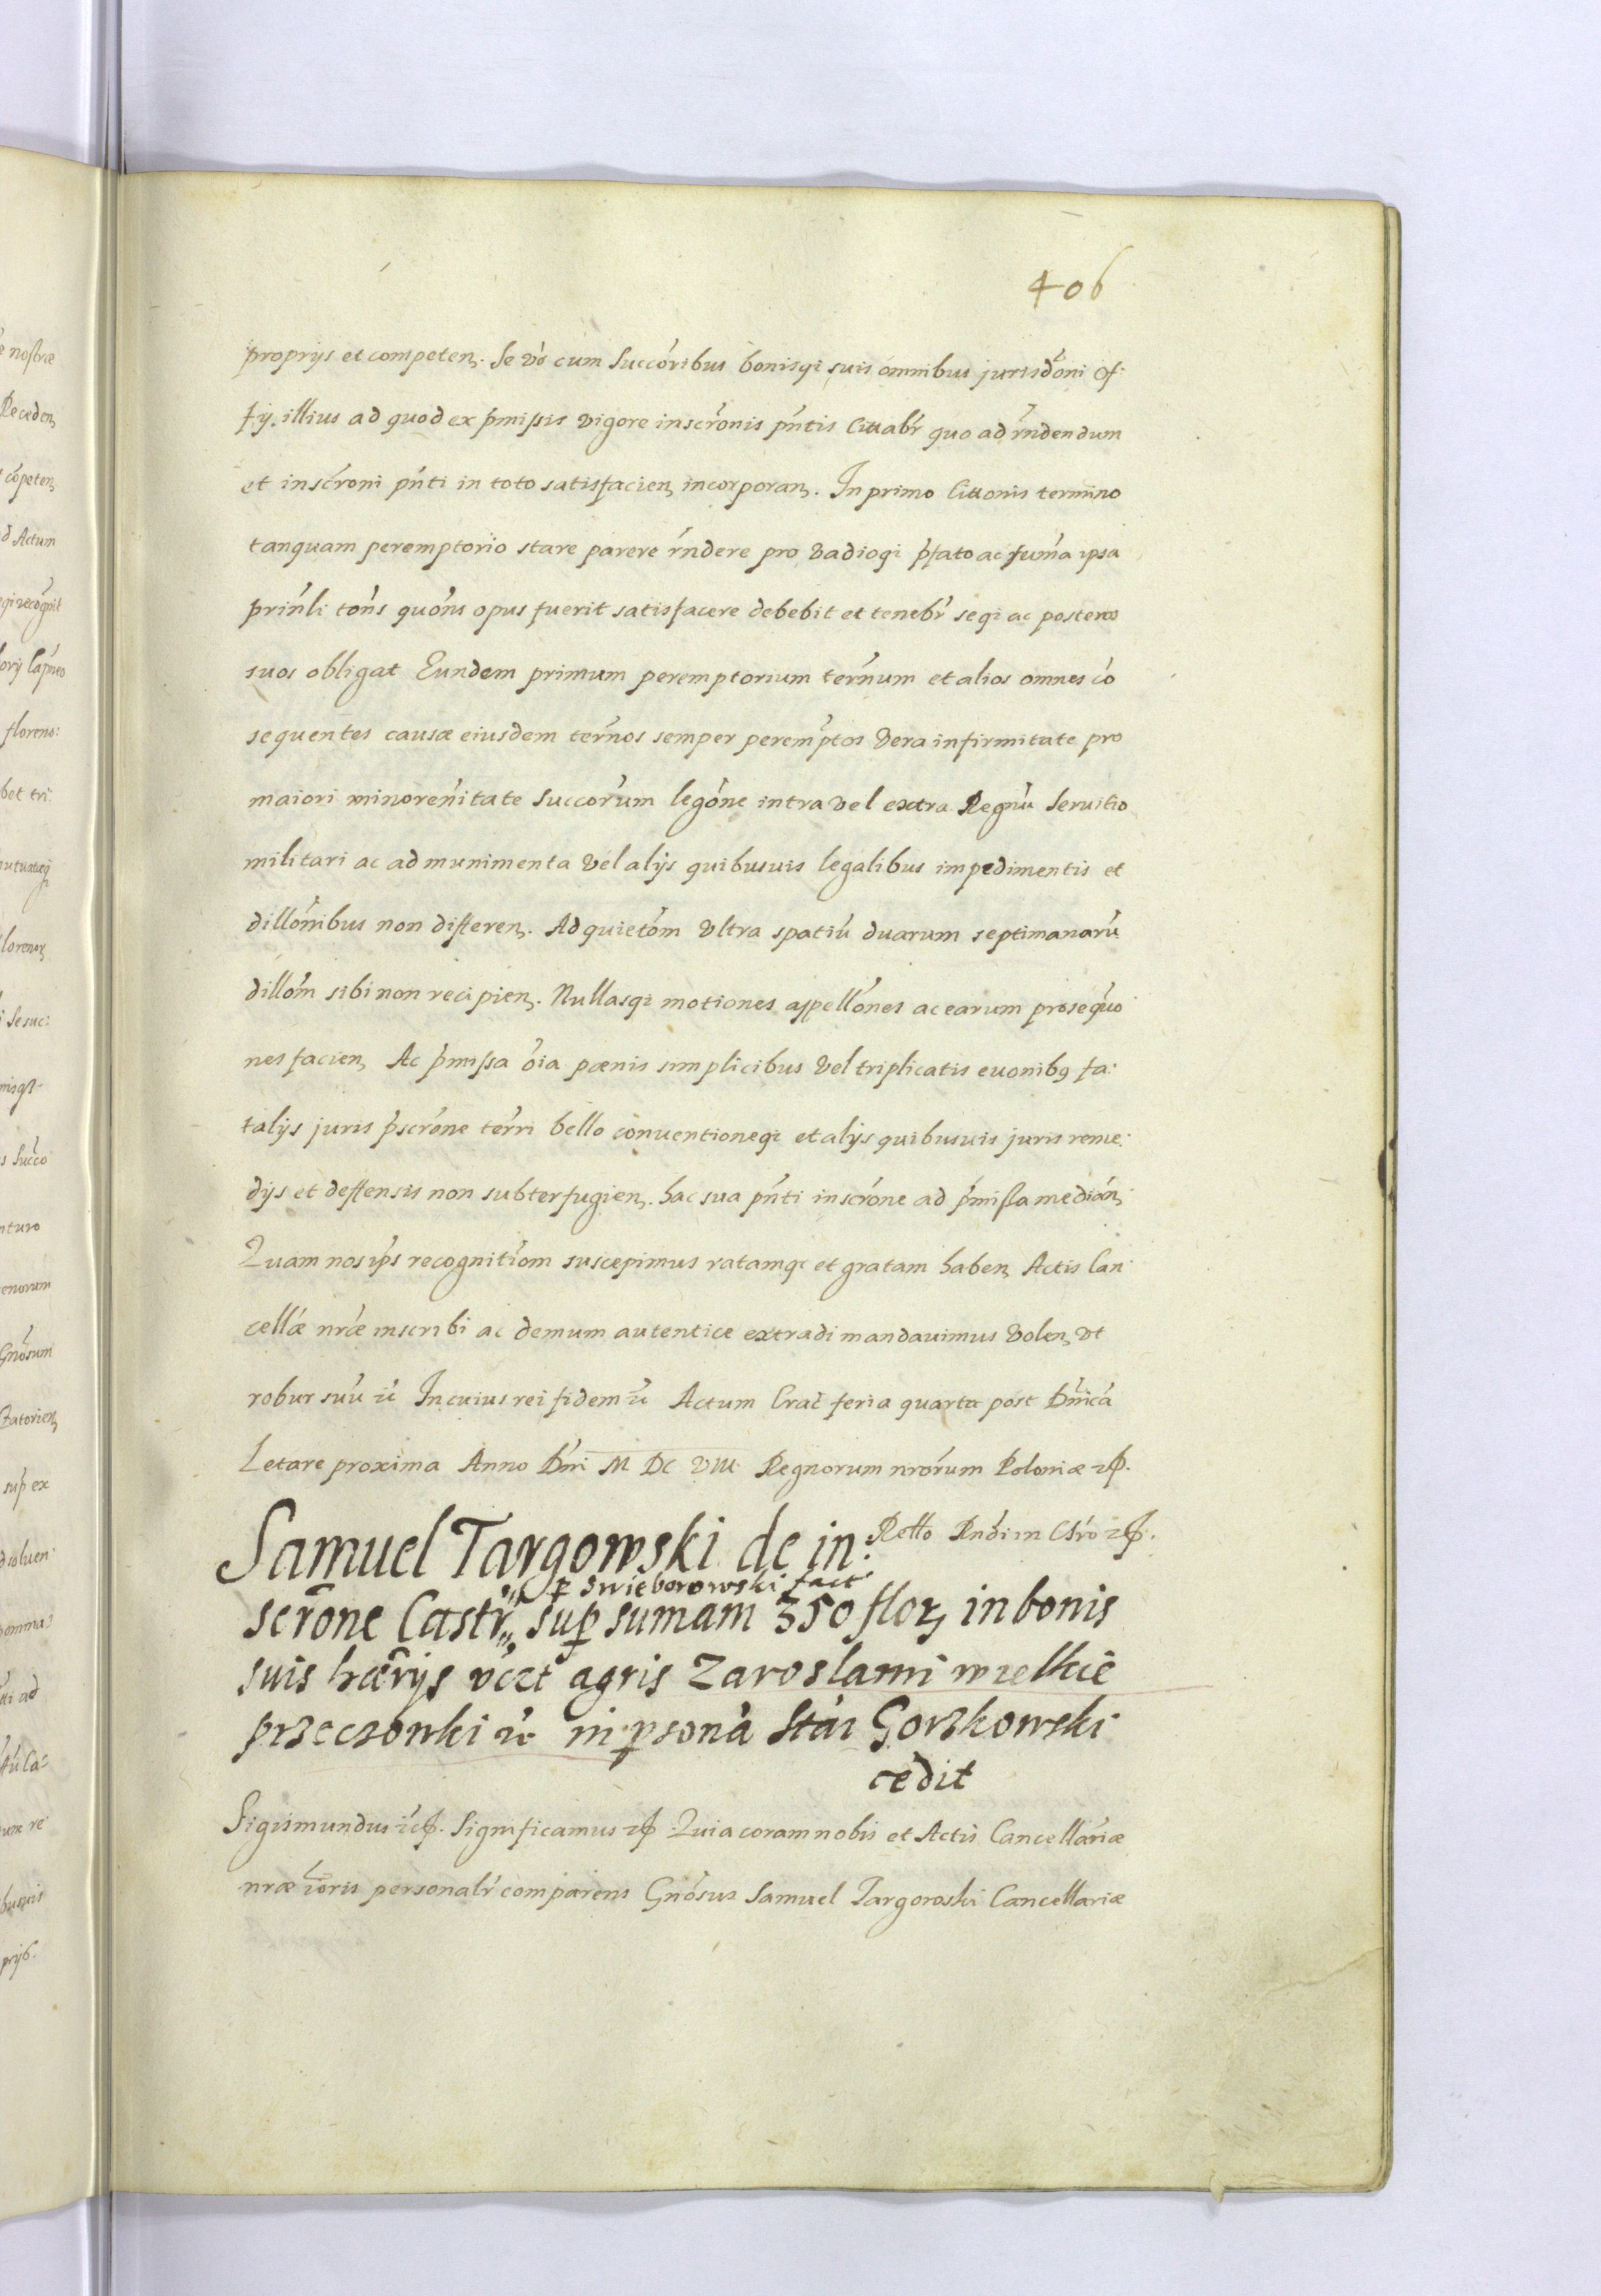 406
proprijs et competen. Se vo cum Succoribus bonisqi suis omnibus jurisdoni of:
fij. illius ad quod ex pmissis vigore inscronis pntis Cittabr quo ad rndendum
et inscroni pnti in toto satisfacien incorporan. In primo Cittonis termino
tanquam peremptorio stare parere rndere pro vadioqi pfato ac suma ipsa
prinli tons quons opus fuerit satisfacere debebit et tenebr seqi ac posteros
suos obligat Eundem primum peremptorium ternum et alios omnes co
sequentes causæ eiusdem ternos semper peremptos vera infirmitate pro
maiori minorennitate Succorum legone intra vel extra Regnu Seruitio
militari ac ad munimenta vel alijs quibusuis legalibus impedimentis et
dillonibus non differen. Ad quietom vltra spatiu duarum septimanaru
dillom sibi non recipien. Nullasqi motiones appellones ac earum prosequo
nes facien Ac pmissa oia pœnis simplicibus vel triplicatis euonibus fa:
talijs juris pscrone terri bello conuentioneqi et alijs quibusuis juris reme:
dijs et deffensis non subterfugien. hac sua pnti inscrone ad pmissa median
Quam nos ips recognitiom suscepimus ratamqi et gratam haben Actis Can
cellæ nræ inscribi ac demum autentice extradi mandauimus volen vt
robur suu etc In cuius rei fidem etc Actum Crac feria quarta post Dnica
Letare proxima Anno Dni M DC VIII Regnorum nrorum Poloniæ etc.
Retto Rndi in Chro etc.
Samuel Targowski de in:
p Swieborowski fact
scrone Castr sup sumam 350 flor in bonis
suis hærijs vczt agris Zaroslami wielkie
przeczonki etc in psona Stai Gorzkowski
cedit
Sigismundus etc. Significamus etc Quia coram nobis et Actis Cancellariæ
nræ ioris personalr comparens Gnosus Samuel Targowski Cancellariæ